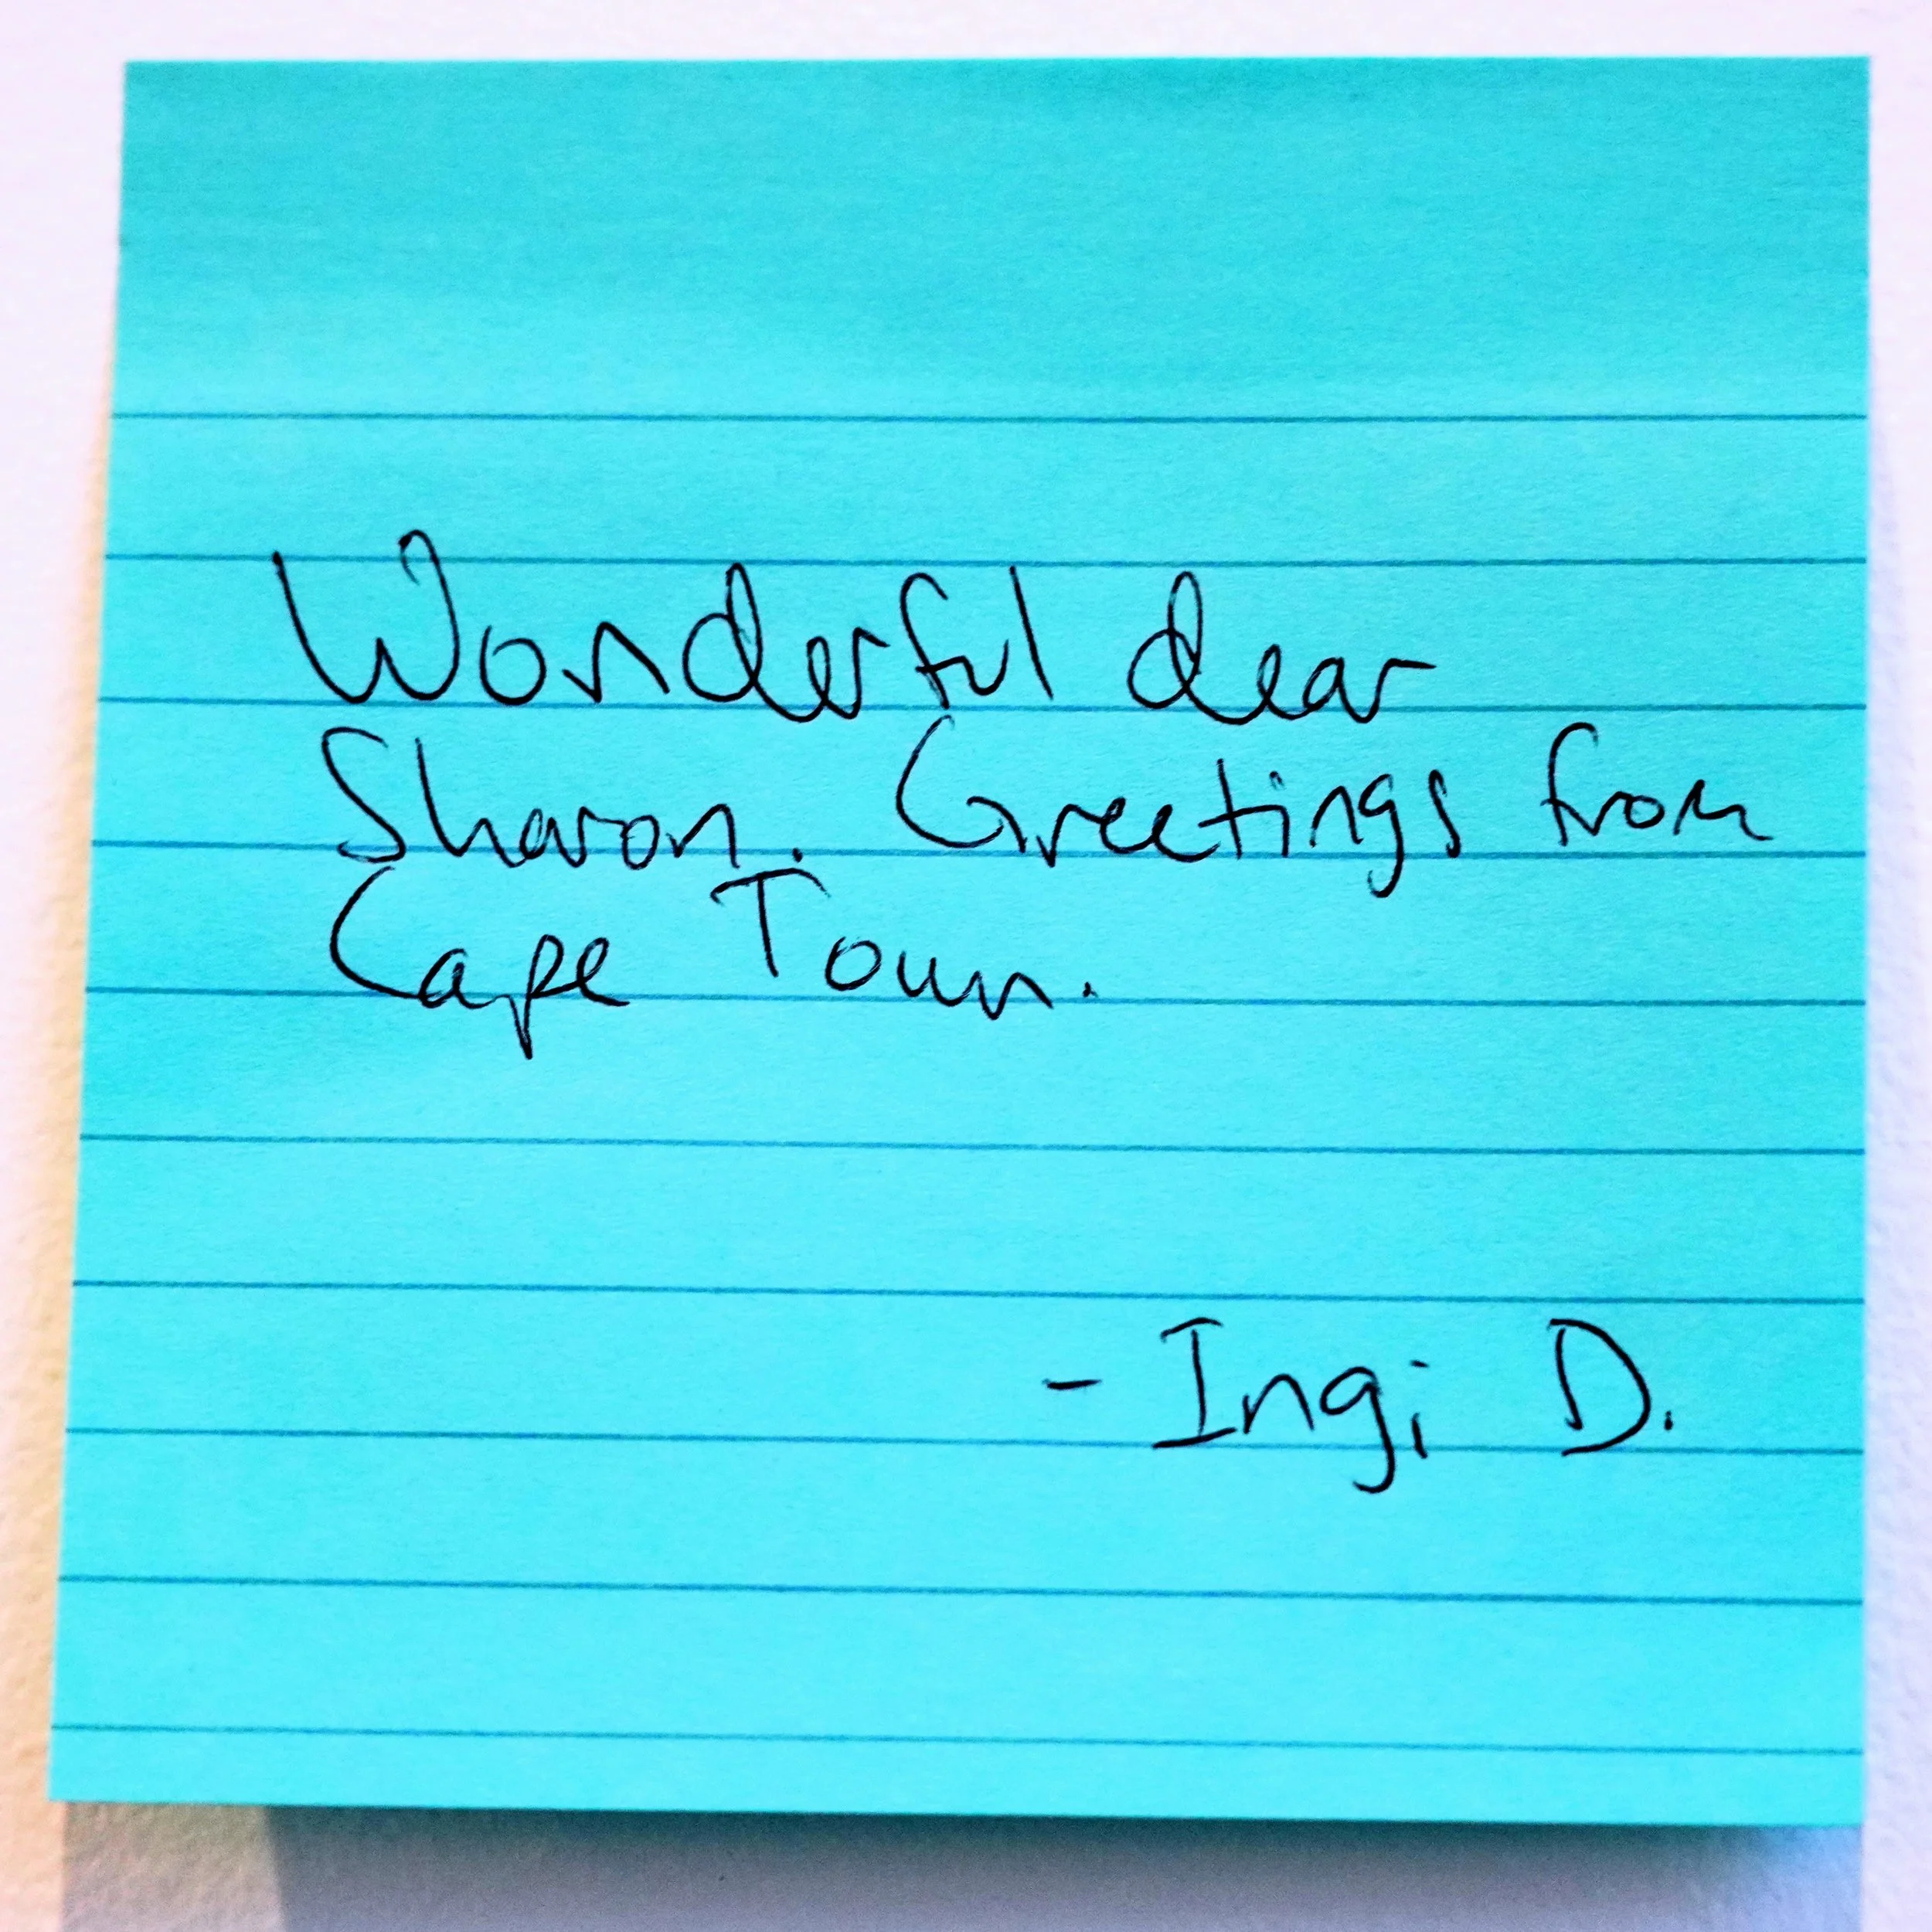 Wonderful dear
Sharon. Greetings from
Cape Town.
- Ingi D.